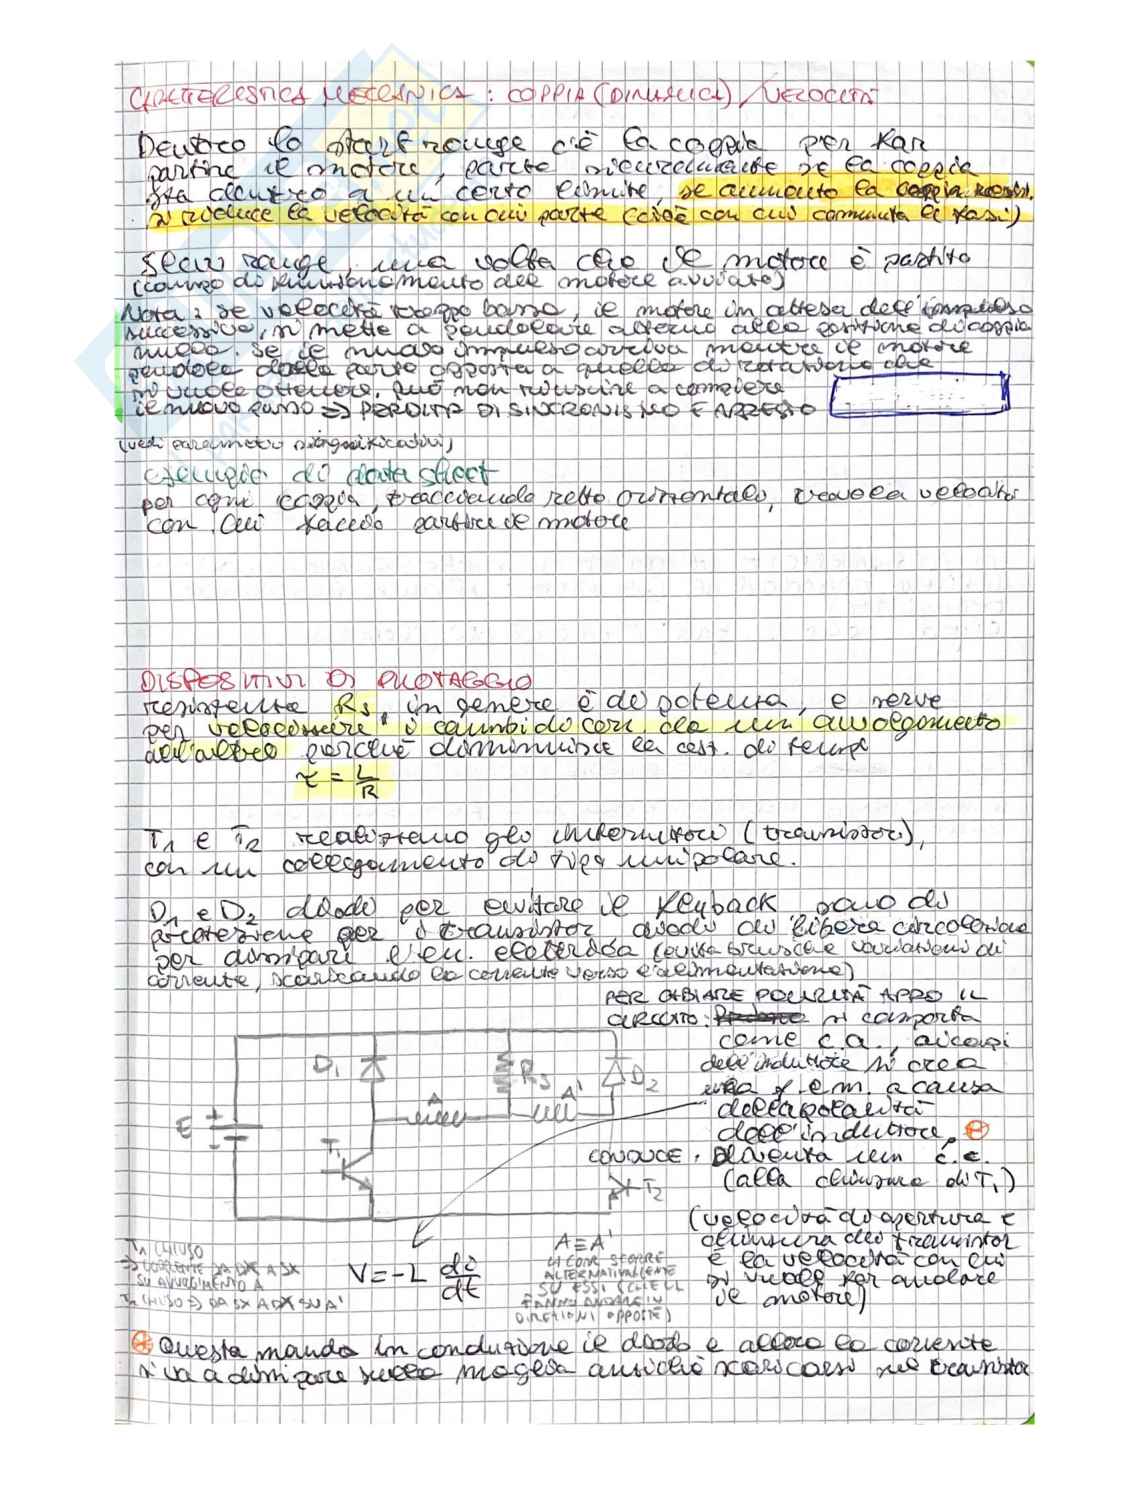 CARATTERISTICA MECCANICA: COPPIA (DINAMICA) / VELOCITÀ
Dentro lo start range c'è la coppia per far
partire il motore, parte sicuramente se la coppia
sta dentro a un certo limite, se aumento la coppia resist.
si riduce la velocità con cui parte (cioè con cui commuta le fasi)
Slew range una volta che il motore è partito
(campo di funzionamento del motore avviato)
Nota: se velocità troppo bassa, il motore in attesa dell'impulso
successivo, si mette a pendolare attorno alla posizione di coppia
nulla. Se il nuovo impulso arriva mentre il motore
pendola dalla parte opposta a quella di rotazione che
si vuole ottenere, può non riuscire a compiere
il nuovo passo => PERDITA DI SINCRONISMO E ARRESTO
(vedi parametri significativi)
esempio di data sheet
per ogni coppia, tracciando retta orizzontale, trovo la velocità
con cui faccio partire il motore
DISPOSITIVI DI PILOTAGGIO
resistenza Rs, in genere è di potenza, e serve
per velocizzare i cambi di corr. da un avvolgimento
all'altro perché diminuisce la cost. di tempo
τ = L/R
T1 e T2 realizzano gli interruttori (transistor),
con un collegamento di tipo unipolare.
D1 e D2 diodi per evitare il flyback sono di
protezione per i transistor diodi di libera circolazione
per dissipare l'en. elettrica (evita brusche variazioni di
corrente, scaricando la corrente verso l'alimentazione)
PER CAMBIARE POLARITÀ APRO IL
CIRCUITO: si comporta
come c.a., ai capi
dell'induttore si crea
una f.e.m. a causa
della polarità
dell'induttore.
CONDUCE: Diventa un c.c.
(alla chiusura di T1)
D1
Rs
D2
A
A'
E
+
-
T1
T2
(velocità di apertura e
chiusura dei transistor
è la velocità con cui
si vuole far andare
il motore)
T1 CHIUSO
=> CORRENTE DA DX A SX
SU AVVOLGIMENTO A
T2 CHIUSO => DA SX A DX SU A'
V = -L di/dt
A ≡ A'
LA CORR. SCORRE
ALTERNATIVAMENTE
SU ESSI (CHE LI
FANNO ANDARE IN
DIREZIONI OPPOSTE)
Questa manda in conduzione il diodo e allora la corrente
si va a dissipare sulla maglia anziché scaricarsi sul transistor